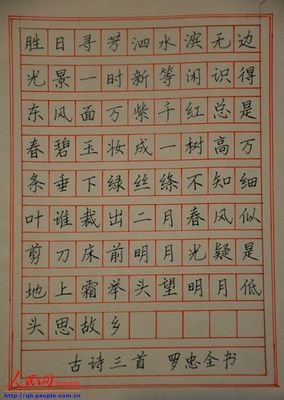 胜日寻芳泗水滨无边
光景一时新等闲识得
东风面万紫千红总是
春碧玉妆成一树高万
条垂下绿丝绦不知细
叶谁裁出二月春风似
剪刀床前明月光疑是
地上霜举头望明月低
头思故乡
古诗三首 罗忠全书
人民网
http://qh.people.com.cn